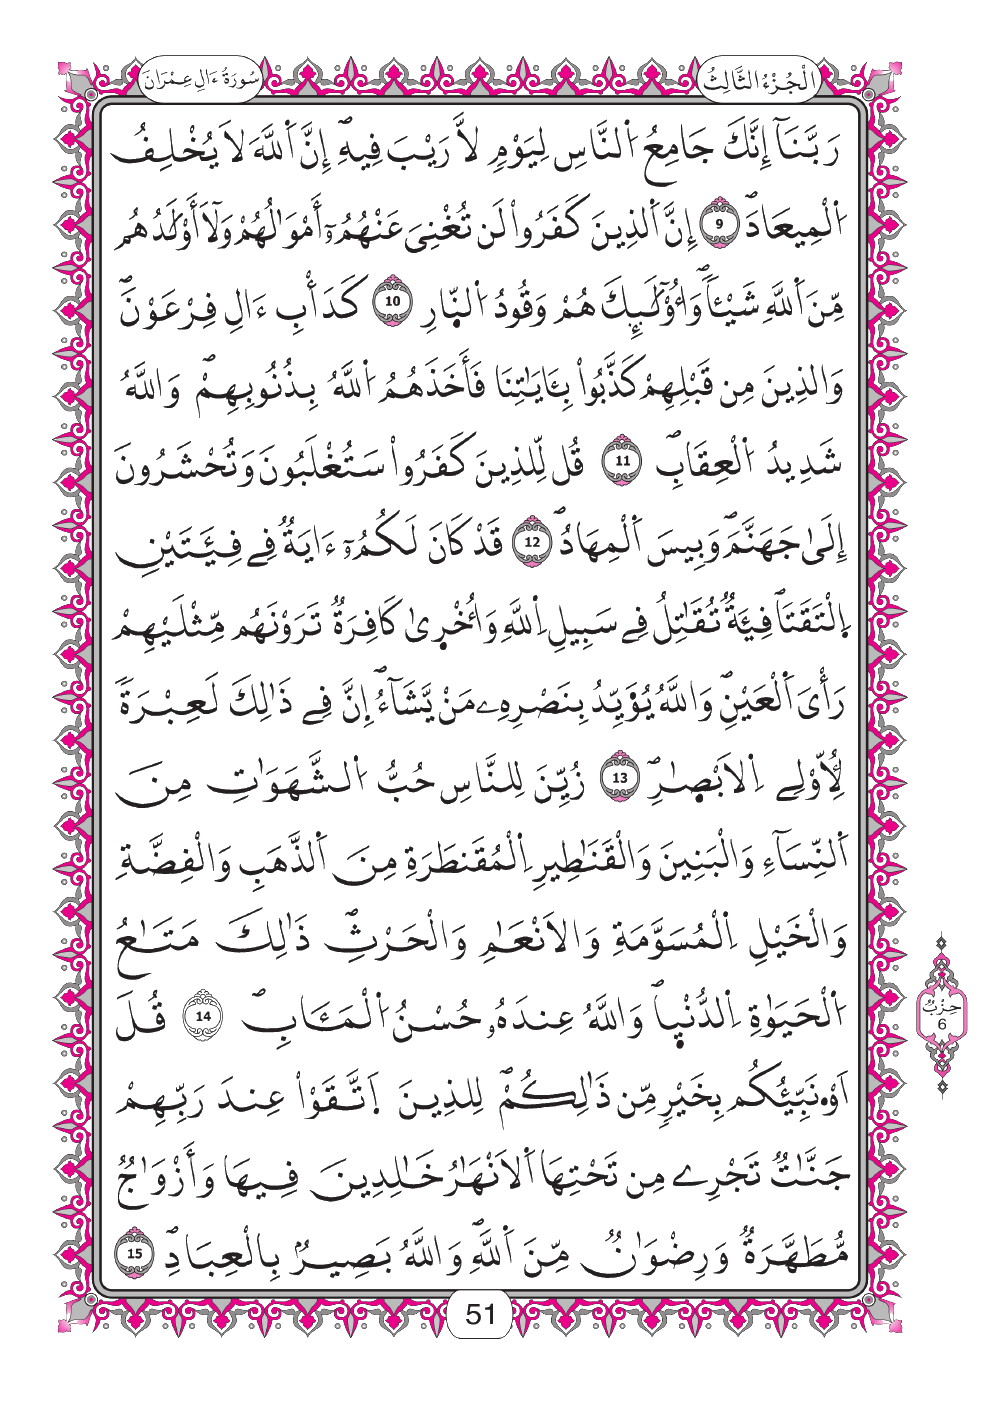 الْجُزْءُ الثَّالِثُ
سُورَةُ ءَالِ عِمْرَانَ
رَبَّنَآ إِنَّكَ جَامِعُ اُ۬لنَّاسِ لِيَوْمٖ لَّا رَيْبَ فِيهِۖ إِنَّ اَ۬للَّهَ لَا يُخْلِفُ
اُ۬لْمِيعَادَۖ 9 إِنَّ اَ۬لذِينَ كَفَرُواْ لَن تُغْنِيَ عَنْهُمُۥٓ أَمْوَٰلُهُمْ وَلَآ أَوْلَٰدُهُم
مِّنَ اَ۬للَّهِ شَيْـٔاٗۖ وَأُوْلَٰٓئِكَ هُمْ وَقُودُ اُ۬لنّ۪ارِ 10 كَدَأْبِ ءَالِ فِرْعَوْنَۖ
وَالذِينَ مِن قَبْلِهِمْ كَذَّبُواْ بِـَٔايَٰتِنَا فَأَخَذَهُمُ اُ۬للَّهُ بِذُنُوبِهِمْۖ وَاللَّهُ
شَدِيدُ اُ۬لْعِقَابِۖ 11 قُل لِّلذِينَ كَفَرُواْ سَتُغْلَبُونَ وَتُحْشَرُونَ
إِلَىٰ جَهَنَّمَۖ وَبِيسَ اَ۬لْمِهَادُۖ 12 قَدْ كَانَ لَكُمُۥٓ ءَايَةٞ فِے فِئَتَيْنِ
اِ۪لْتَقَتَاۖ فِئَةٞ تُقَٰتِلُ فِے سَبِيلِ اِ۬للَّهِ وَأُخْر۪يٰ كَافِرَةٞ تَرَوْنَهُم مِّثْلَيْهِمْ
رَأْىَ اَ۬لْعَيْنِۖ وَاللَّهُ يُؤَيِّدُ بِنَصْرِهِۦ مَنْ يَّشَآءُۖ اِنَّ فِے ذَٰلِكَ لَعِبْرَةٗ
لِّأُوْلِے اِ۬لَابْصٰ۪رِۖ 13 زُيِّنَ لِلنَّاسِ حُبُّ اُ۬لشَّهَوَٰتِ مِنَ
اَ۬لنِّسَآءِ وَالْبَنِينَ وَالْقَنَٰطِيرِ اِ۬لْمُقَنطَرَةِ مِنَ اَ۬لذَّهَبِ وَالْفِضَّةِ
وَالْخَيْلِ اِ۬لْمُسَوَّمَةِ وَالَانْعَٰمِ وَالْحَرْثِۖ ذَٰلِكَ مَتَٰعُ
اُ۬لْحَيَوٰةِ اِ۬لدُّنْي۪اۖ وَاللَّهُ عِندَهُۥ حُسْنُ اُ۬لْمَـَٔابِۖ 14 قُلَ
اَوُ۟نَبِّئُكُم بِخَيْرٖ مِّن ذَٰلِكُمْۖ لِلذِينَ اَ۪تَّقَوْاْ عِندَ رَبِّهِمْ
جَنَّٰتٞ تَجْرِے مِن تَحْتِهَا اَ۬لَانْهَٰرُ خَٰلِدِينَ فِيهَا وَأَزْوَٰجٞ
مُّطَهَّرَةٞ وَرِضْوَٰنٞ مِّنَ اَ۬للَّهِۖ وَاللَّهُ بَصِيرُۢ بِالْعِبَادِۖ 15
حِزْبٌ
6
51